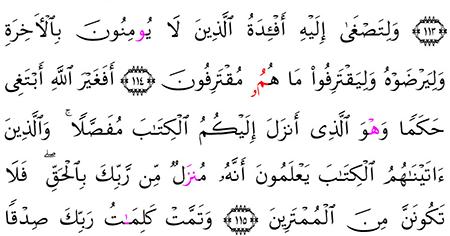 ﴿١١٣﴾ وَلِتَصْغَىٰ إِلَيْهِ أَفْـِٔدَةُ ٱلَّذِينَ لَا يُومِنُونَ بِٱلْأَخِرَةِ
وَلِيَرْضَوْهُ وَلِيَقْتَرِفُوا۟ مَا هُمُۥ مُقْتَرِفُونَ ﴿١١٤﴾ أَفَغَيْرَ ٱللَّهِ أَبْتَغِى
حَكَمًا وَهْوَ ٱلَّذِى أَنزَلَ إِلَيْكُمُ ٱلْكِتَـٰبَ مُفَصَّلًا ۚ وَٱلَّذِينَ
ءَاتَيْنَـٰهُمُ ٱلْكِتَـٰبَ يَعْلَمُونَ أَنَّهُۥ مُنزَلٌ مِّن رَّبِّكَ بِٱلْحَقِّ ۖ فَلَا
تَكُونَنَّ مِنَ ٱلْمُمْتَرِينَ ﴿١١٥﴾ وَتَمَّتْ كَلِمَـٰتُ رَبِّكَ صِدْقًا